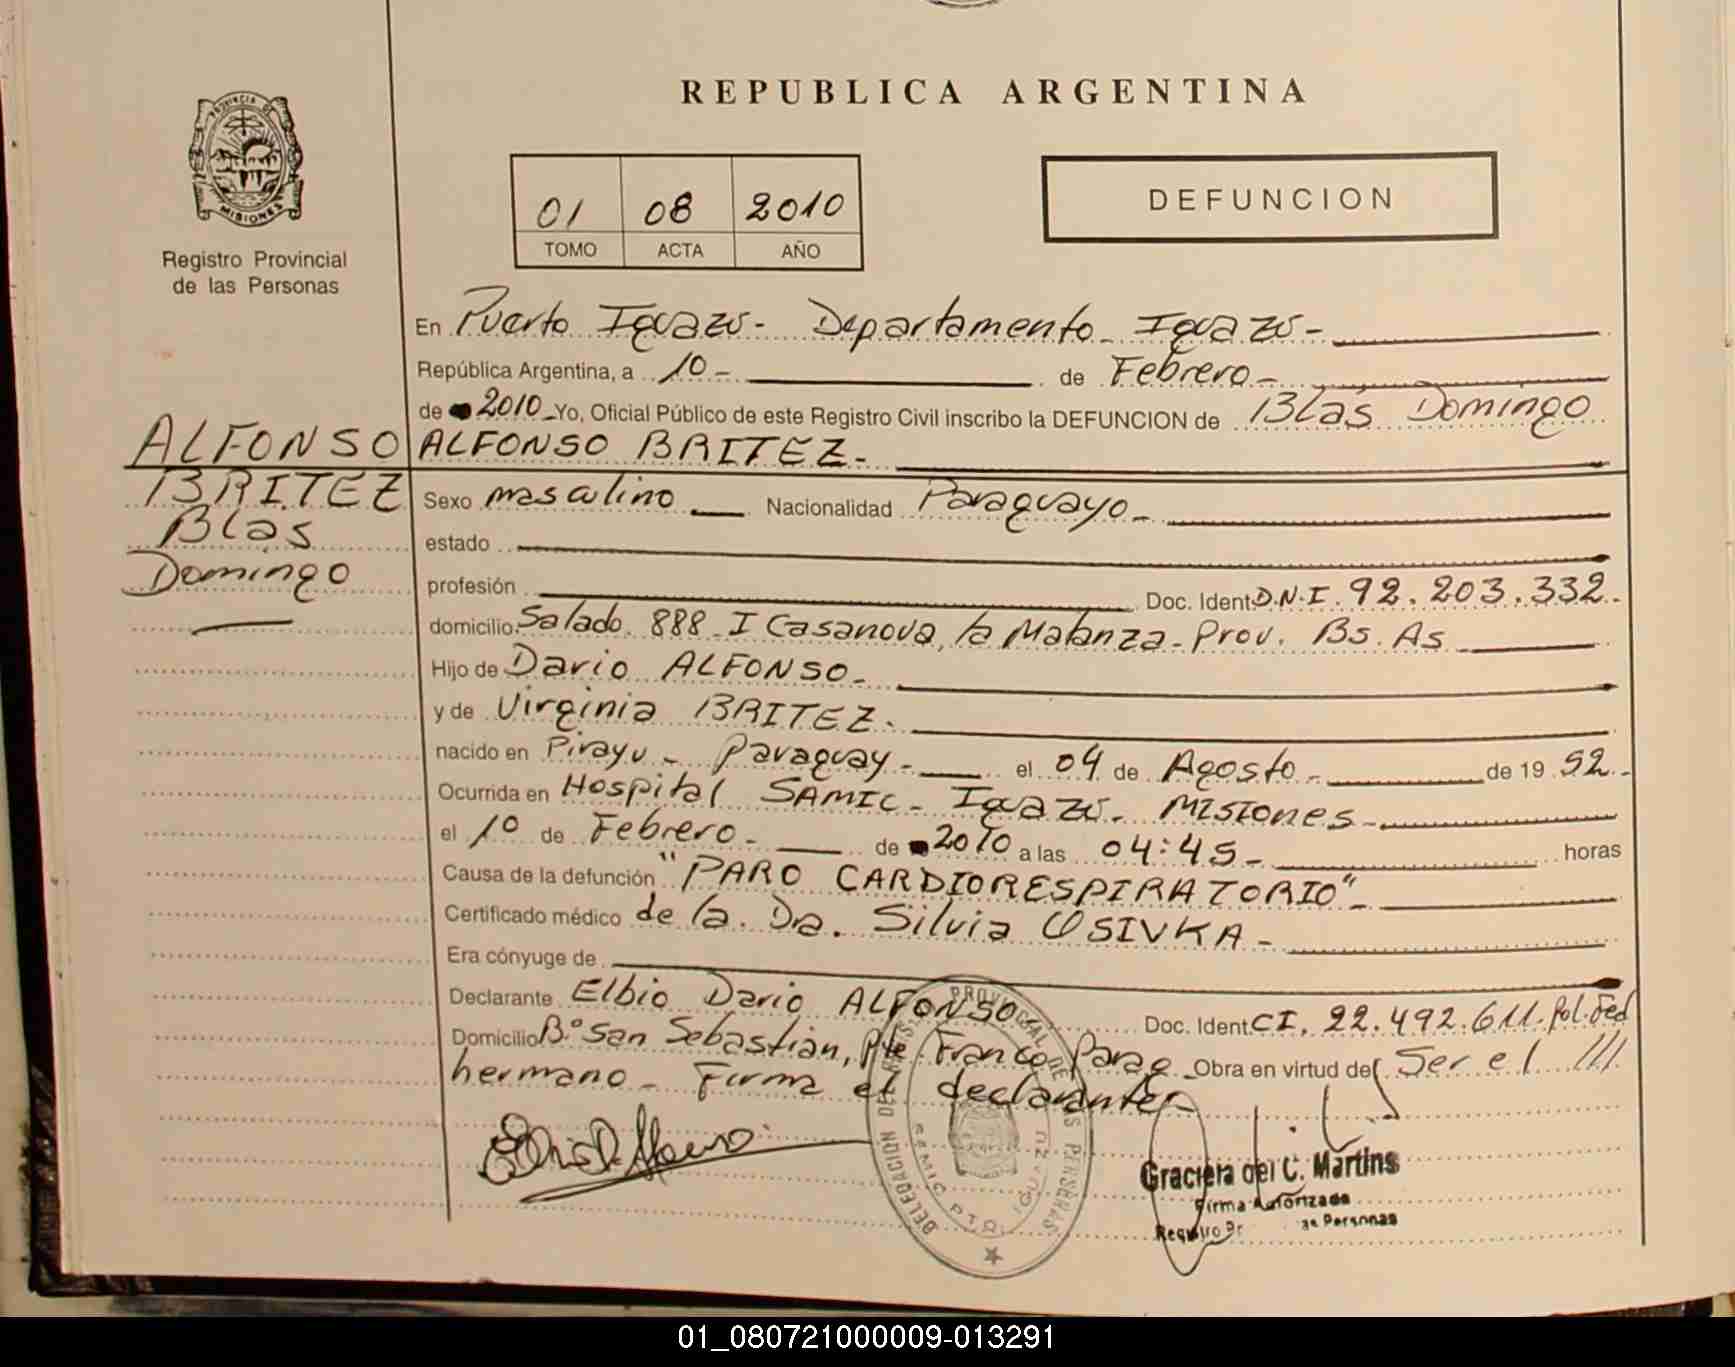 REPUBLICA ARGENTINA
PROVINCIA DE
MISIONES
Registro Provincial
de las Personas
01 08 2010
TOMO ACTA AÑO
DEFUNCION
En Puerto Iguazú - Departamento - Iguazú -
República Argentina, a 10 - de Febrero -
de 2010 - Yo, Oficial Público de este Registro Civil inscribo la DEFUNCION de Blas Domingo
ALFONSO BRITEZ -
ALFONSO
BRITEZ
Blas
Domingo
Sexo masculino Nacionalidad Paraguayo -
estado
profesión Doc. Ident. D.N.I. 92.203.332 -
domicilio Salado 888 - I Casanova, la Matanza - Prov. Bs. As
Hijo de Dario ALFONSO -
y de Virginia BRITEZ -
nacido en Pirayu - Paraguay - el 04 de Agosto - de 19 52 -
Ocurrida en Hospital SAMIC - Iguazú - MISIONES -
el 10 de Febrero - de 2010 a las 04:45 - horas
Causa de la defunción "PARO CARDIORESPIRATORIO" -
Certificado médico de la Dra. Silvia OSIVKA -
Era cónyuge de
Declarante Elbio Dario ALFONSO - Doc. Ident. CI. 22.492.611 - Pol. Fed
Domicilio Bº San Sebastián, Pte Franco Parag - Obra en virtud de Ser el ///
hermano - Firma el declarante -
DELEGACION DEL REGISTRO PROVINCIAL DE LAS PERSONAS
SAMIC PTO. IGUAZU
Graciela del C. Martins
Firma Autorizada
Registro Pr as Personas
01_080721000009-013291